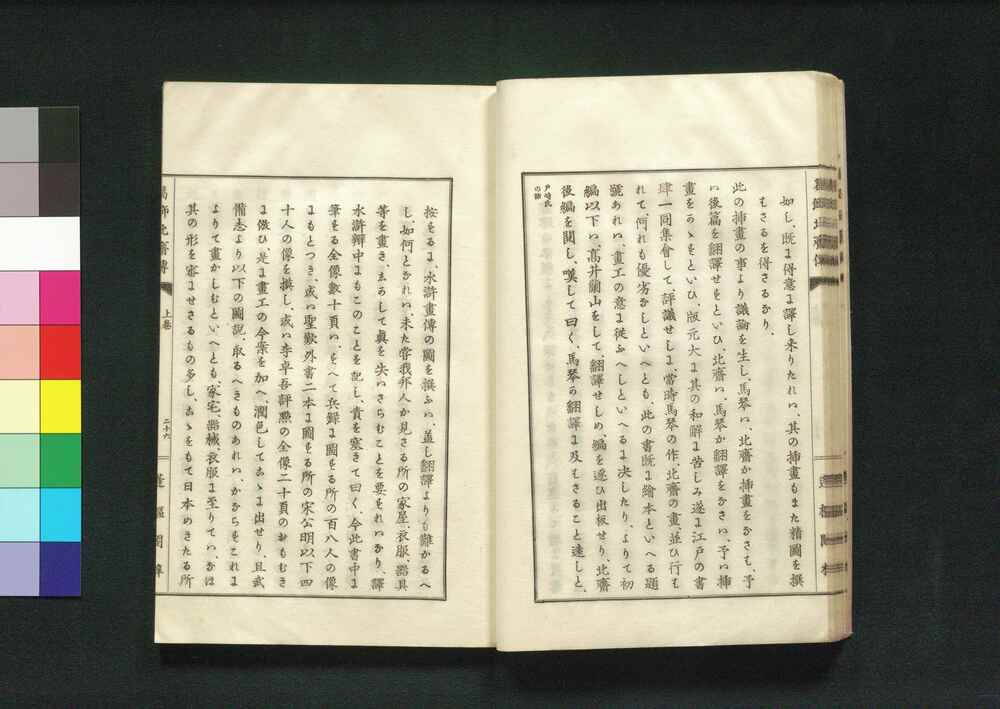 如し、既に得意に譯し来りたれハ、其の挿畫もまた精圖を撰
はさるを得さるなり、
此の挿畫の事より議論を生し、馬琴ハ、北齋か挿畫をなさは、予
ハ後篇を翻譯せすといひ、北齋ハ、馬琴か翻譯をなさハ、予ハ挿
畫をかゝすといひ、版元大に其の和解に苦しみ遂に江戸の書
肆一同集會して、評議せしに、當時馬琴の作、北齋の畫、並ひ行は
れて、何れも優劣なしといへとも、此の書既に繪本といへる題
號あれハ、畫工の意に従ふへしといへるに決したり、よりて初
編以下ハ、高井蘭山をして、翻譯せしめ、編を逐ひ出板せり、北齋
後編を閲し、嘆して曰く、馬琴の翻譯に及はさること遠しと、
戸崎氏
の話
按するに、水滸畫傳の圖を撰ふハ、蓋し翻譯よりも難かるへ
し、如何となれハ、未た嘗我邦人か見さる所の家屋、衣服、器具
等を畫き、志かして眞を失ハさらむことを要すれハなり、譯
水滸辯中にもこのことを記し、責を塞きて曰く、今此書中に
筆する全像數十頁ハ、すへて兵録に圖する所の百八人の像
にもとつき、或ハ聖歎外書二本に圖する所の宋公明以下四
十人の像を摸し、或ハ李卓吾評㸃の全像二十頁のおもむき
に倣ひ、是に畫工の今案を加へ、潤色してこゝに出せり、且武
備志より以下の圖説、取るへきものあれハ、かならすこれに
よりて畫かしむといへとも、家宅、器械、衣服に至りてハ、なほ
其の形を審にせさるもの多し、こゝをもて日本めきたる所
葛飾北齋傳 上卷 二十六